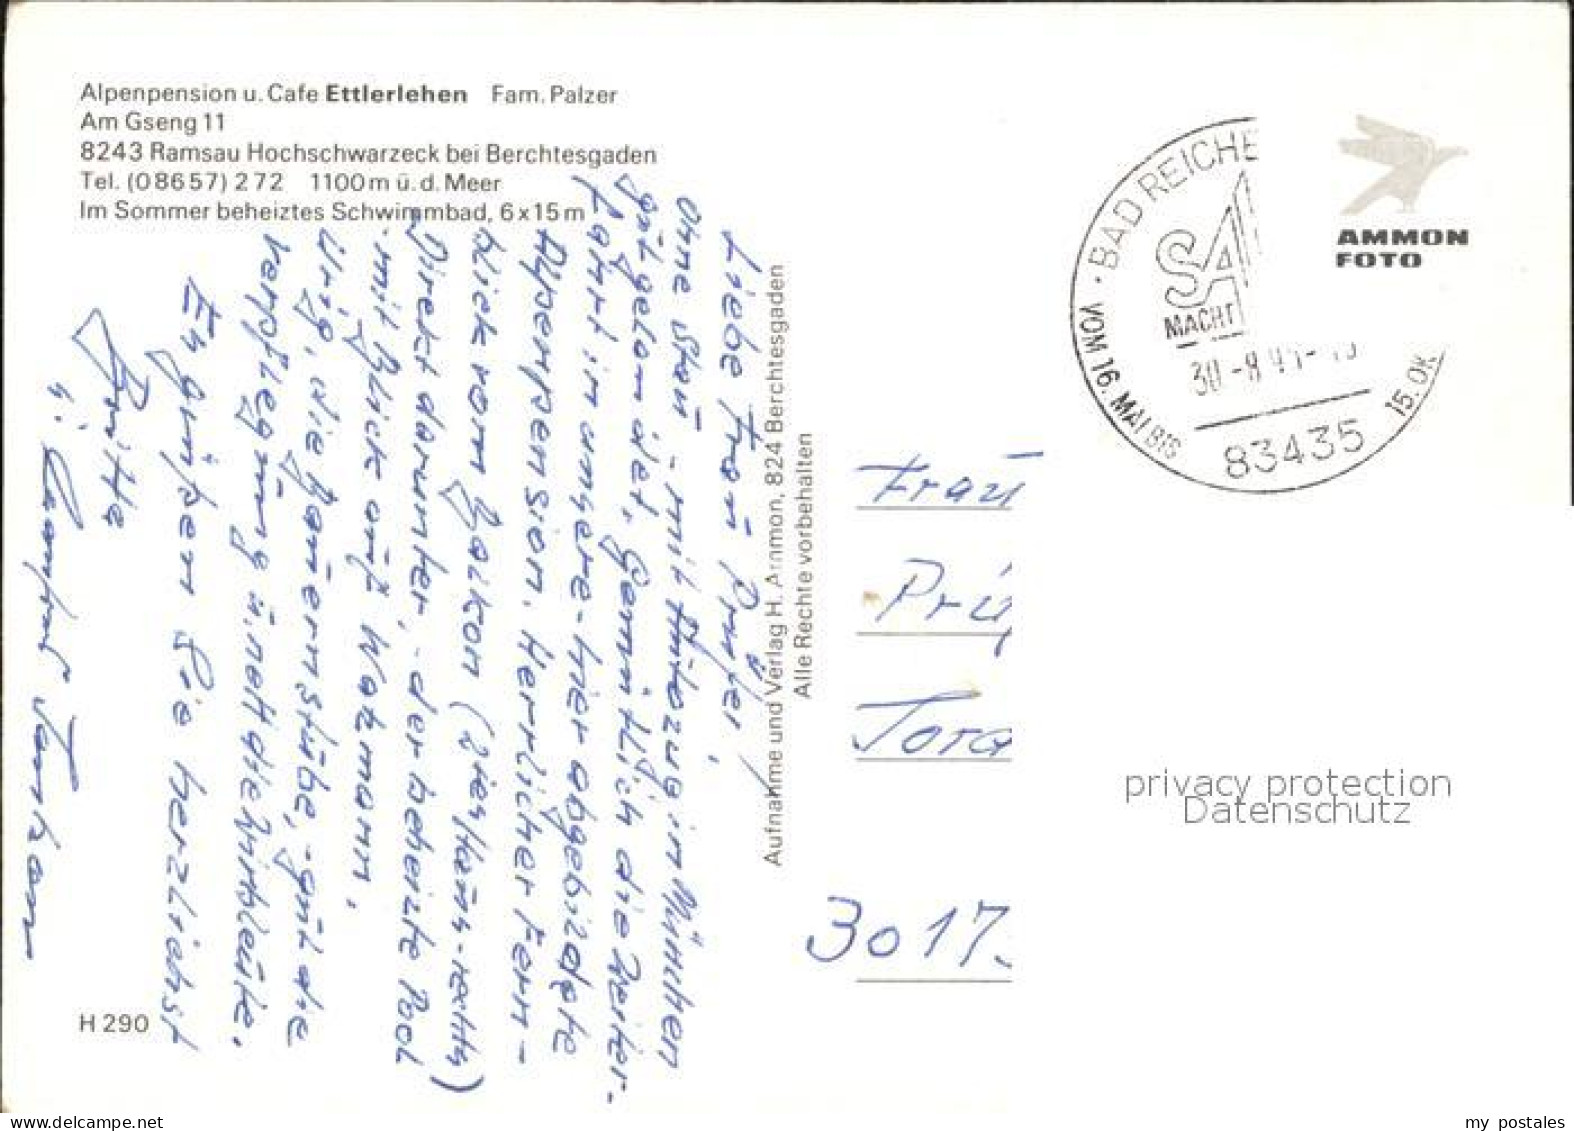 Alpenpension u. Cafe Ettlerlehen Fam. Palzer
Am Gseng 11
8243 Ramsau Hochschwarzeck bei Berchtesgaden
Tel. (08657) 272 1100m ü. d. Meer
Im Sommer beheiztes Schwimmbad, 6x15m
Liebe Frau Prüfer,
ohne Stau - mit Autozug in München
gut gelandet, gemütlich die Weiter-
fahrt in unsere - hier abgebildete
Alpenpension. Herrlicher Fern-
blick vom Balkon (2tes Haus - rechts)
Direkt darunter, - der beheizte Pool
- mit Blick auf Watzmann,
Urig, die Bauernstube, - gut die
Verpflegung u. nett die Wirtsleute.
Es grüßen Sie herzlichst
Britta
H 290
Aufnahme und Verlag H. Ammon, 824 Berchtesgaden
Alle Rechte vorbehalten
· BAD REICHE
SA
MACHT
VOM 16. MAI BIS
15. OK
83435
AMMON
FOTO
Frau
Prü
3017.
privacy protection
Datenschutz
my postales